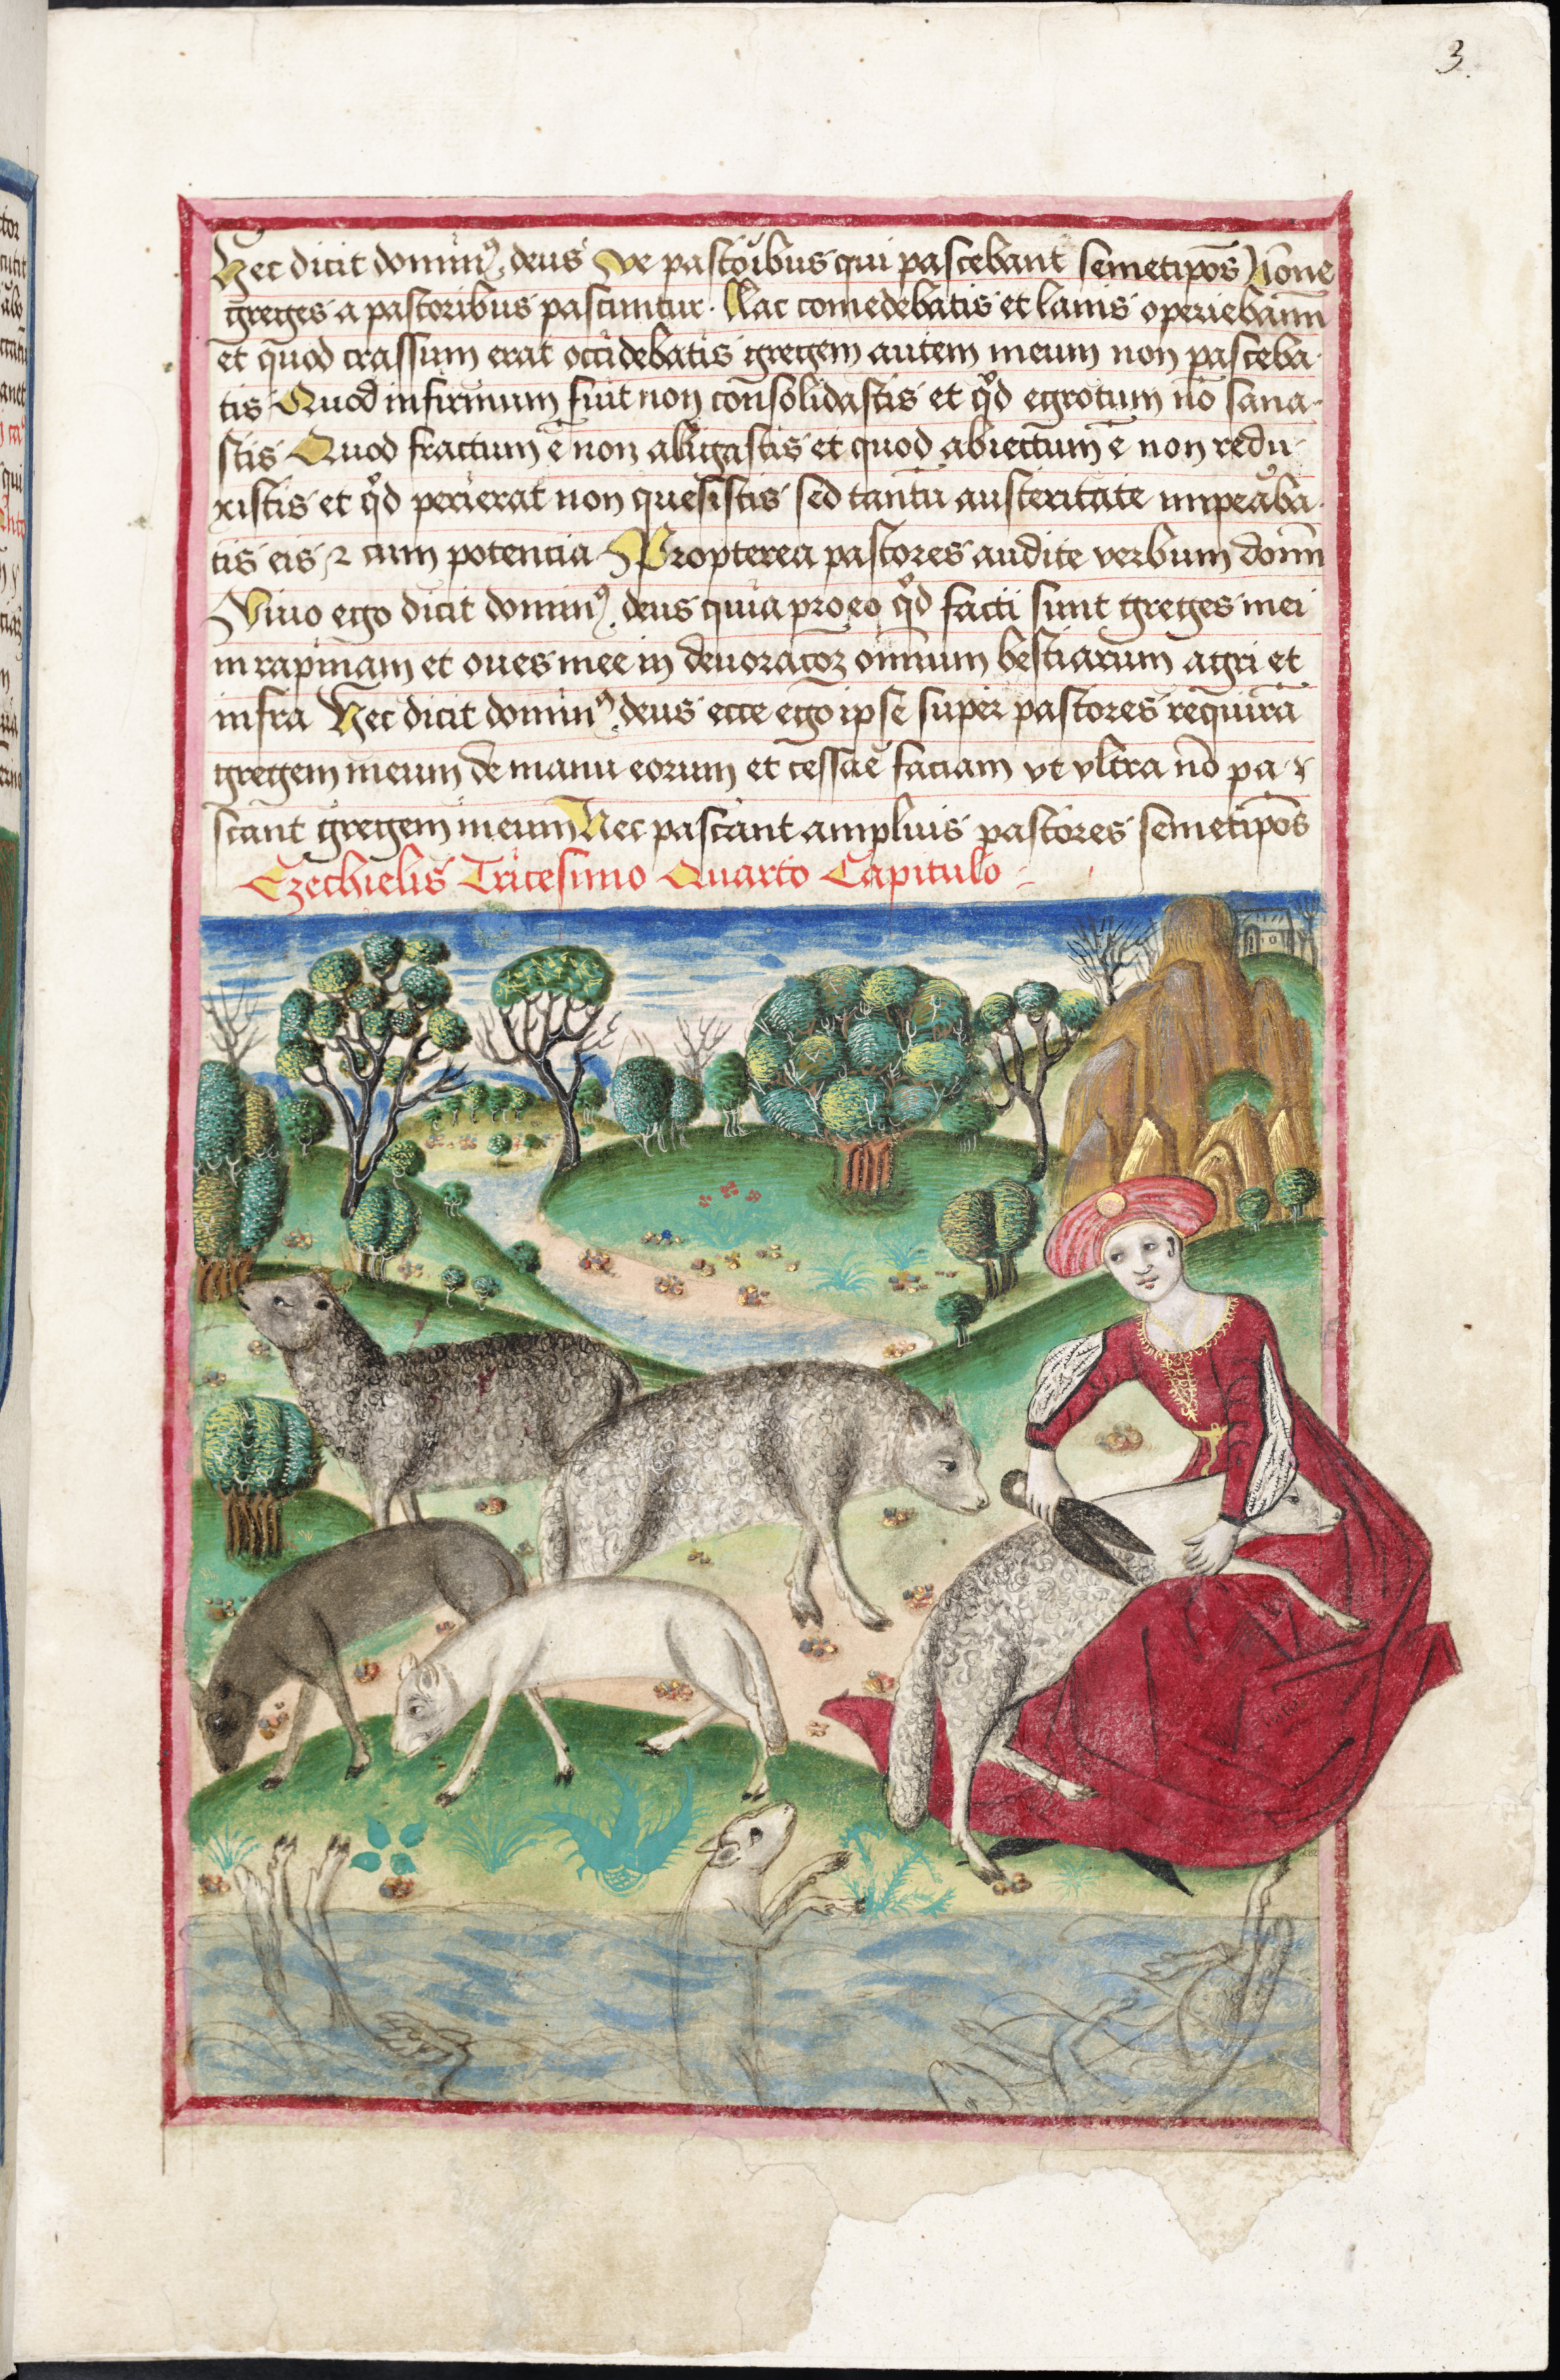 3.
Hec dicit dominꝰ deus ve pastoribus qui pascebant semetipōs Nōne
greges a pastoribus pascuntur. Lac comedebatis et lanis operiebamī
et quod crassum erat occidebatis gregem autem meum non pasceba
tis Quod infirmum fuit non consolidastis et qͦd egrotum nō sana
stis Quod fractum ē non alligastis et quod abiectum ē non redu
xistis et qͦd perierat non quesistis sed tantū austeritate imperaba
tis eis ⁊ cum potencia Propterea pastores audite verbum domī
Viuo ego dicit dominꝰ deus quia pro eo qͦd facti sunt greges mei
in rapinam et oues mee in deuoracōꝫ omnium bestiarum agri et
infra Hec dicit dominꝰ deus ecce ego ipse super pastores requirā
gregem meum de manu eorum et cessaē faciam vt vltra nō pa
scant gregem meum Nec pascant amplius pastores semetipōs
Ezechielis Tricesimo Quarto Capitulo